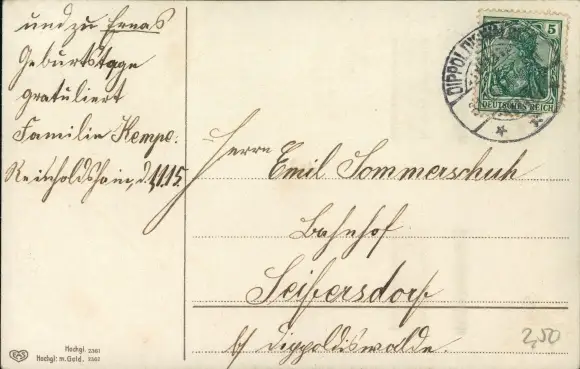 und zu Ernas
Geburtstage
gratuliert
Familie Kempe.
Reinholdshain, d. 1,11.15.
Herrn
Emil Sommerschuh
Bahnhof
Seifersdorf
b/ Dippoldiswalde.
5
DEUTSCHES REICH
EAS
Hochgl. 2361
Hochgl. m. Gold.
2,50